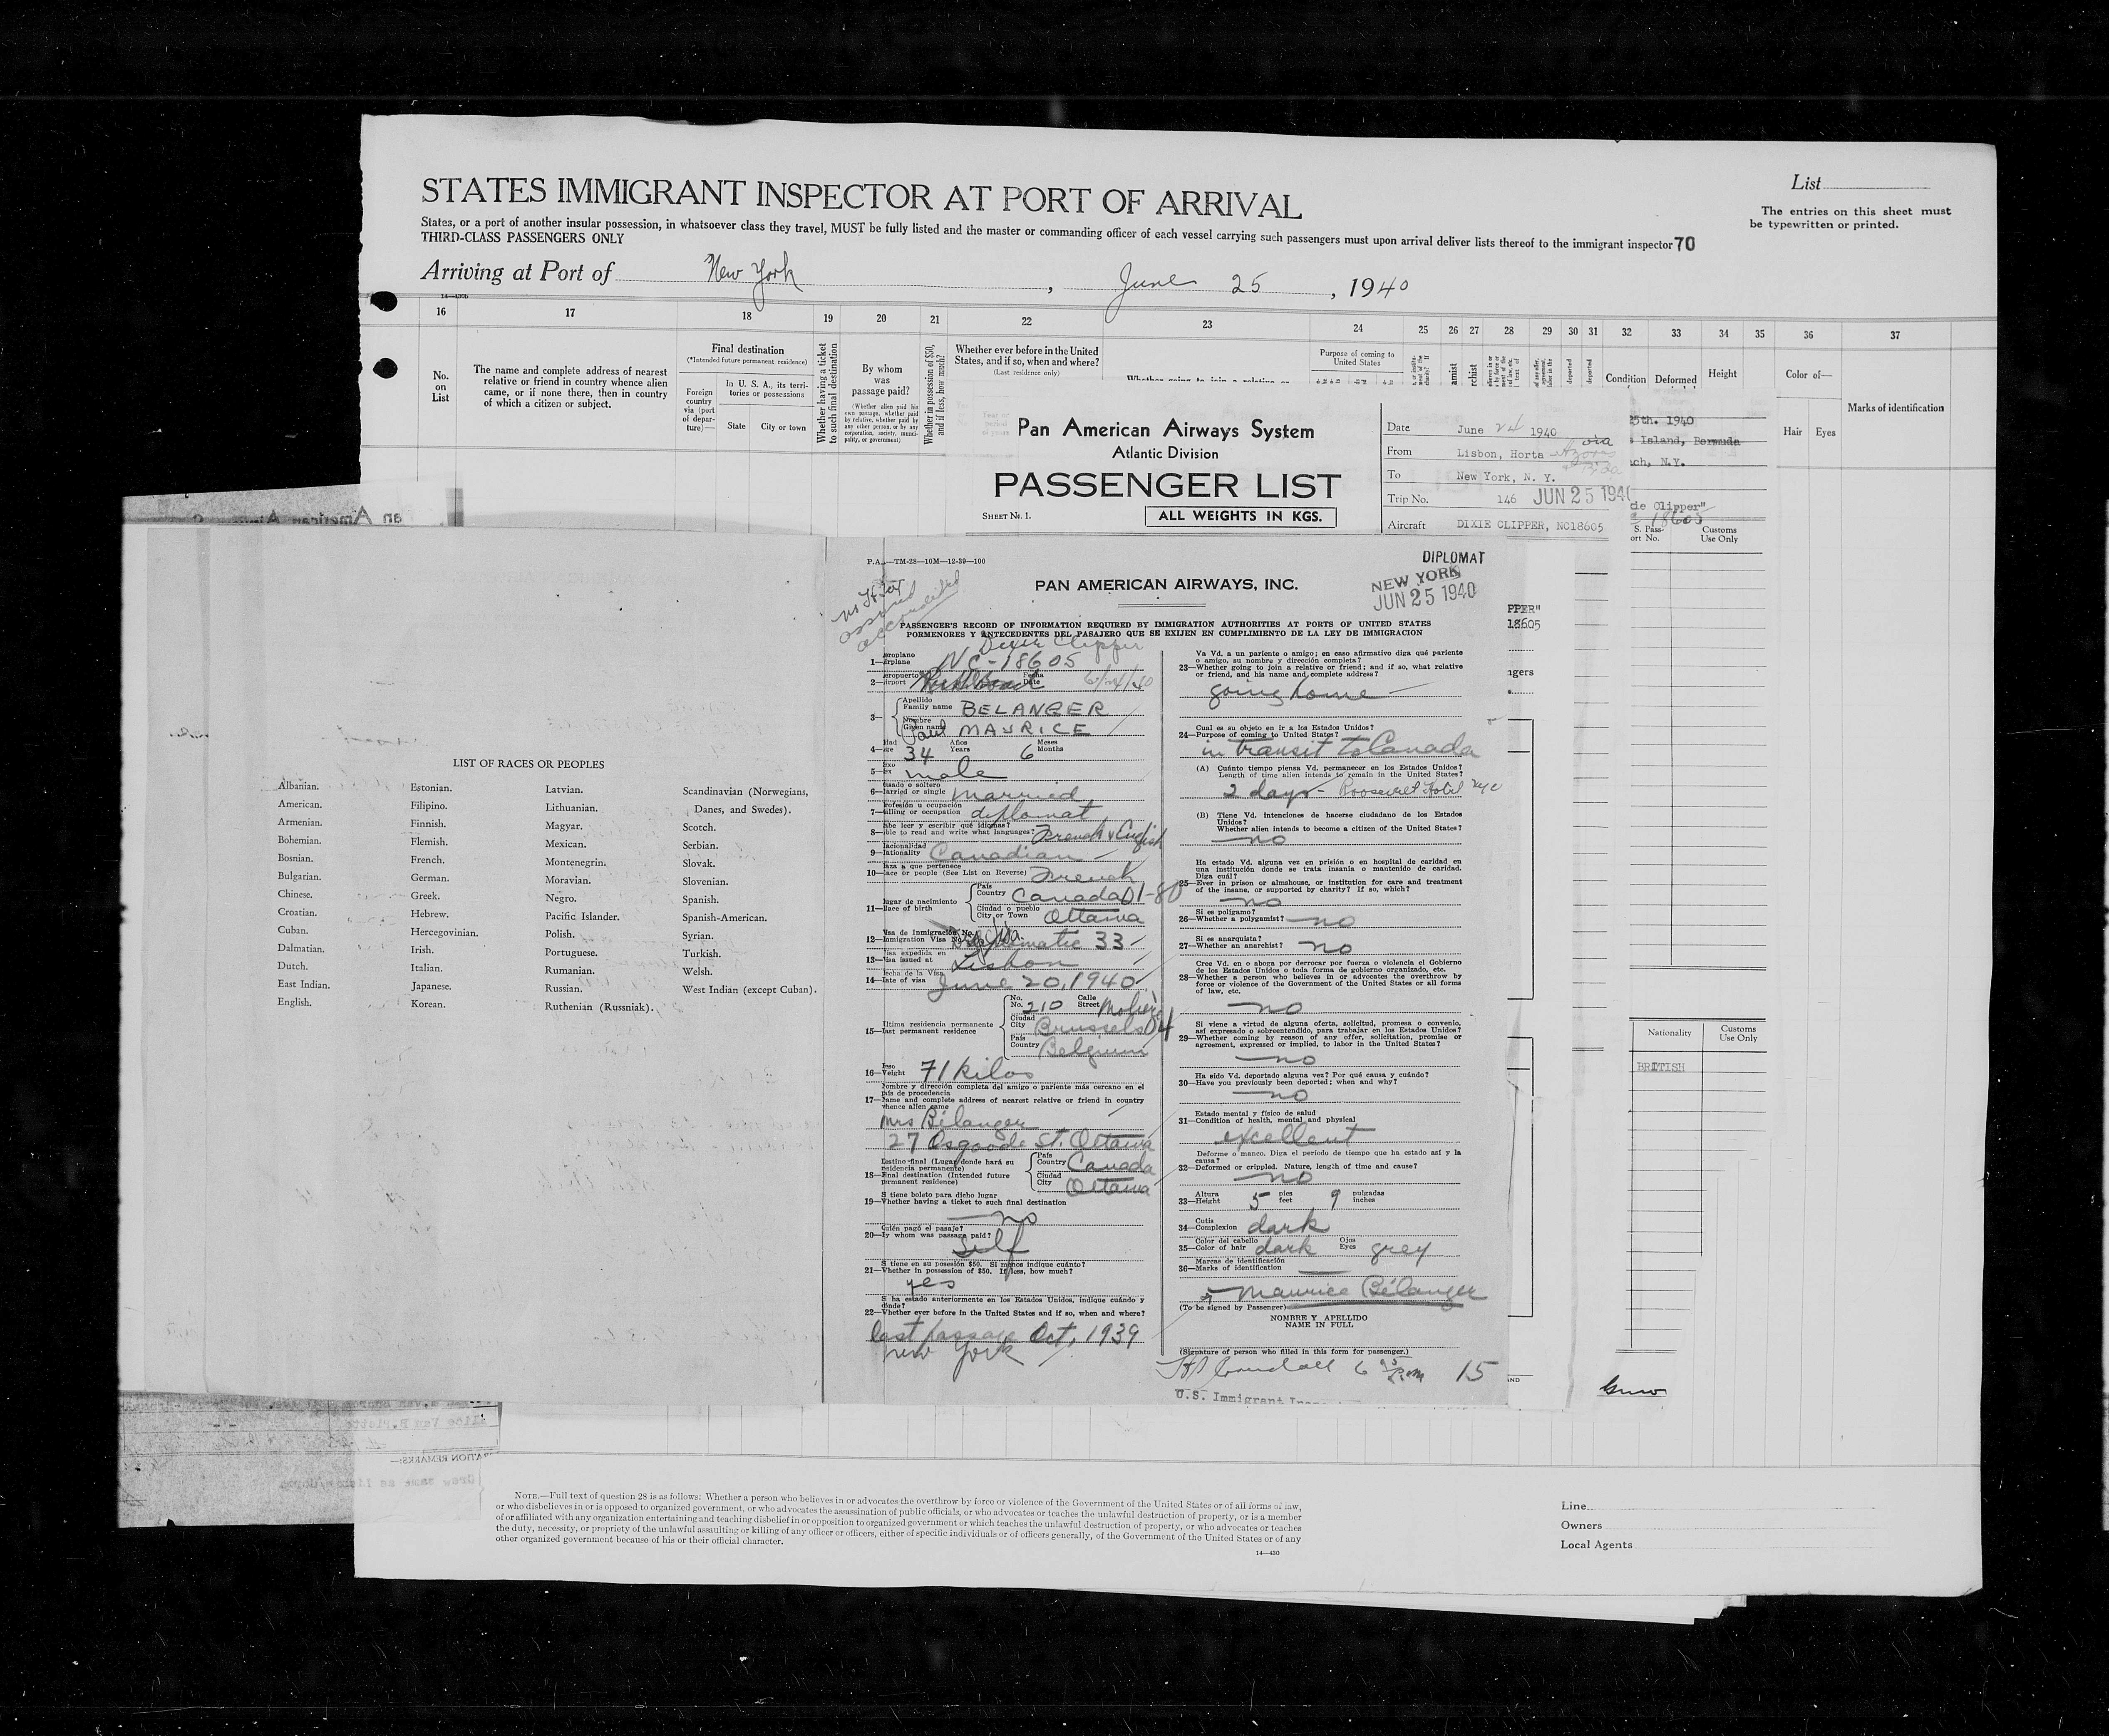 STATES IMMIGRANT INSPECTOR AT PORT OF ARRIVAL
List
The entries on this sheet must
be typewritten or printed.
States, or a port of another insular possession, in whatsoever class they travel, MUST be fully listed and the master or commanding officer of each vessel carrying such passengers must upon arrival deliver lists thereof to the immigrant inspector 70
THIRD-CLASS PASSENGERS ONLY
Arriving at Port of New York, June 25, 1940
16 17 18 19 20 21 22 23 24 25 26 27 28 29 30 31 32 33 34 35 36 37
No. on List
The name and complete address of nearest
relative or friend in country whence alien
came, or if none there, then in country
of which a citizen or subject.
Final destination
(*Intended future permanent residence)
Foreign country via (port of departure)—
In U. S. A., its territories or possessions
State
City or town
Whether having a ticket to such final destination
By whom was passage paid?
(Whether alien paid his own passage, whether paid by relative, whether paid by any other person, or by any corporation, society, municipality, or government)
Whether in possession of $50, and if less, how much?
Whether ever before in the United
States, and if so, when and where?
(Last residence only)
Purpose of coming to United States
Condition
Deformed
Height
Color of—
Hair Eyes
Marks of identification
Pan American Airways System
Atlantic Division
PASSENGER LIST
SHEET No. 1.
ALL WEIGHTS IN KGS.
Date June 24 1940
From Lisbon, Horta
To New York, N. Y.
Trip No. 146 JUN 25 1940
Aircraft DIXIE CLIPPER, NC18605
25th. 1940
Island, Bermuda
ch, N.Y.
Clipper"
18605
S. Pass-
ort No.
Customs
Use Only
PPER"
18605
ngers
Nationality
Customs
Use Only
BRITISH
LIST OF RACES OR PEOPLES
Albanian.
American.
Armenian.
Bohemian.
Bosnian.
Bulgarian.
Chinese.
Croatian.
Cuban.
Dalmatian.
Dutch.
East Indian.
English.
Estonian.
Filipino.
Finnish.
Flemish.
French.
German.
Greek.
Hebrew.
Hercegovinian.
Irish.
Italian.
Japanese.
Korean.
Latvian.
Lithuanian.
Magyar.
Mexican.
Montenegrin.
Moravian.
Negro.
Pacific Islander.
Polish.
Portuguese.
Rumanian.
Russian.
Ruthenian (Russniak).
Scandinavian (Norwegians,
Danes, and Swedes).
Scotch.
Serbian.
Slovak.
Slovenian.
Spanish.
Spanish-American.
Syrian.
Turkish.
Welsh.
West Indian (except Cuban).
P.A.—TM-28—10M—12-39—100
DIPLOMAT
PAN AMERICAN AIRWAYS, INC.
NEW YORK
JUN 25 1940
PASSENGER'S RECORD OF INFORMATION REQUIRED BY IMMIGRATION AUTHORITIES AT PORTS OF UNITED STATES
PORMENORES Y ANTECEDENTES DEL PASAJERO QUE SE EXIJEN EN CUMPLIMIENTO DE LA LEY DE IMMIGRACION
Dixie Clipper
1— NC-18605
2— 6/24/40
3— Apellido
Family name BELANGER
Nombre
Given name Paul MAURICE
4— 34 Años Years 6 Meses Months
5— male
6— married or single married
7— calling or occupation diplomat
8— able to read and write what languages? French & English
9— nationality Canadian
10— race or people (See List on Reverse) French
11— lugar de nacimiento
País Country Canada 01-80
Ciudad o pueblo
City or Town Ottawa
12— Immigration Visa No. Diplomatic 33
13— visa issued at Lisbon
14— date of visa June 20, 1940
15— última residencia permanente
last permanent residence
No. 210 Calle Street Molière
Ciudad City Brussels
País Country Belgium
16— Weight 71 kilos
Nombre y dirección completa del amigo o pariente más cercano en el
país de procedencia
17— name and complete address of nearest relative or friend in country
whence alien came
Mrs Bélanger
27 Osgoode St. Ottawa
18— final destination (Intended future
permanent residence)
País Country Canada
Ciudad City Ottawa
Si tiene boleto para dicho lugar
19—Whether having a ticket to such final destination
no
Quién pagó el pasaje?
20—By whom was passage paid?
Self
Si tiene en su posesión $50. Si menos indique cuánto?
21—Whether in possession of $50. If less, how much?
yes
Si ha estado anteriormente en los Estados Unidos, indique cuándo y
dónde?
22—Whether ever before in the United States and if so, when and where?
last passage Oct, 1939
New York
Va Vd. a un pariente o amigo; en caso afirmativo diga qué pariente
o amigo, su nombre y dirección completa?
23—Whether going to join a relative or friend; and if so, what relative
or friend, and his name and complete address?
going home
Cual es su objeto en ir a los Estados Unidos?
24—Purpose of coming to United States?
in transit to Canada
(A) Cuánto tiempo piensa Vd. permanecer en los Estados Unidos?
Length of time alien intends to remain in the United States?
2 days - Roosevelt Hotel NYC
(B) Tiene Vd. intenciones de hacerse ciudadano de los Estados
Unidos?
Whether alien intends to become a citizen of the United States?
no
Ha estado Vd. alguna vez en prisión o en hospital de caridad en
una institución donde se trata insania o mantenido de caridad.
Diga cuál?
25—Ever in prison or almshouse, or institution for care and treatment
of the insane, or supported by charity? If so, which?
no
Si es polígamo?
26—Whether a polygamist? no
Si es anarquista?
27—Whether an anarchist? no
Cree Vd. en o aboga por derrocar por fuerza o violencia el Gobierno
de los Estados Unidos o toda forma de gobierno organizado, etc.
28—Whether a person who believes in or advocates the overthrow by
force or violence of the Government of the United States or all forms
of law, etc.
no
Si viene a virtud de alguna oferta, solicitud, promesa o convenio,
así expresado o sobreentendido, para trabajar en los Estados Unidos?
29—Whether coming by reason of any offer, solicitation, promise or
agreement, expressed or implied, to labor in the United States?
no
Ha sido Vd. deportado alguna vez? Por qué causa y cuándo?
30—Have you previously been deported; when and why?
no
Estado mental y físico de salud
31—Condition of health, mental and physical
excellent
Deforme o manco. Diga el período de tiempo que ha estado así y la
causa?
32—Deformed or crippled. Nature, length of time and cause?
no
Altura
33—Height 5 pies feet 9 pulgadas inches
Cutis
34—Complexion dark
Color del cabello
35—Color of hair dark Ojos Eyes grey
Marcas de identificación
36—Marks of identification
Maurice Bélanger
(To be signed by Passenger)
NOMBRE Y APELLIDO
NAME IN FULL
(Signature of person who filled in this form for passenger.)
15
U.S. Immigrant
NOTE.—Full text of question 28 is as follows: Whether a person who believes in or advocates the overthrow by force or violence of the Government of the United States or of all forms of law,
or who disbelieves in or is opposed to organized government, or who advocates the assassination of public officials, or who advocates or teaches the unlawful destruction of property, or is a member
of or affiliated with any organization entertaining and teaching disbelief in or opposition to organized government or which teaches the unlawful destruction of property, or who advocates or teaches
the duty, necessity, or propriety of the unlawful assaulting or killing of any officer or officers, either of specific individuals or of officers generally, of the Government of the United States or of any
other organized government because of his or their official character.
14—430
Line
Owners
Local Agents